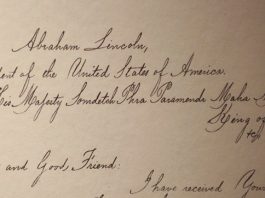 Abraham Lincoln,
dent of the United States of America.
His Majesty Somdetch Phra Paramendr Maha
King of
&c
and Good Friend:
I have received Your